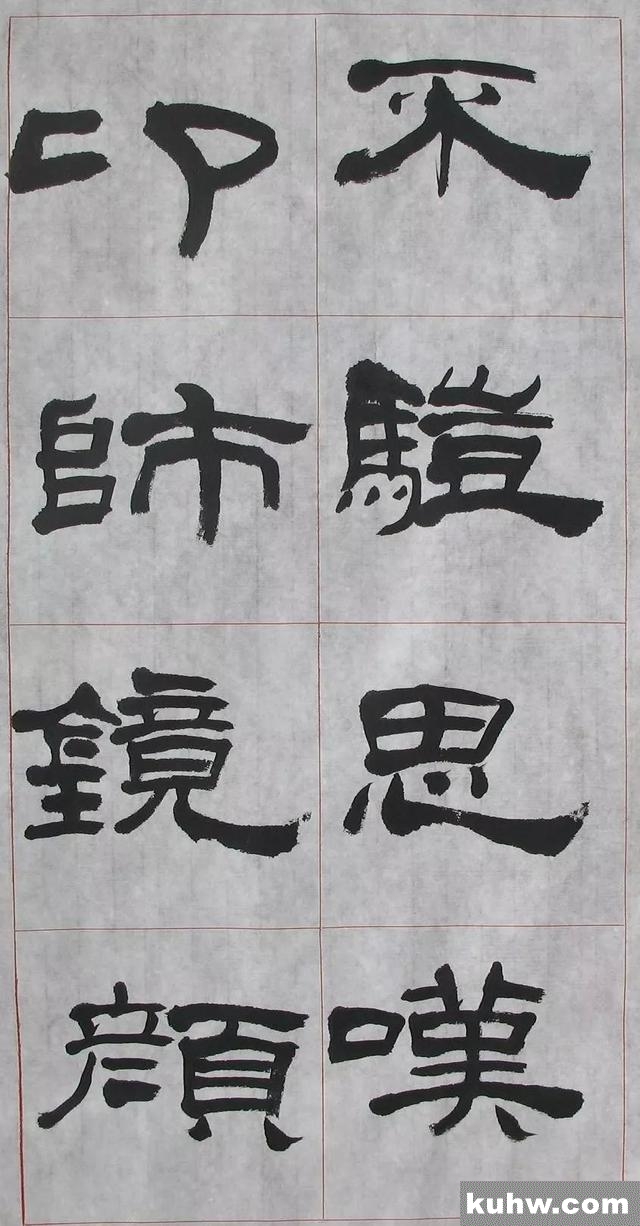 不騹思嘆
卬師鏡顏
kuhw.com